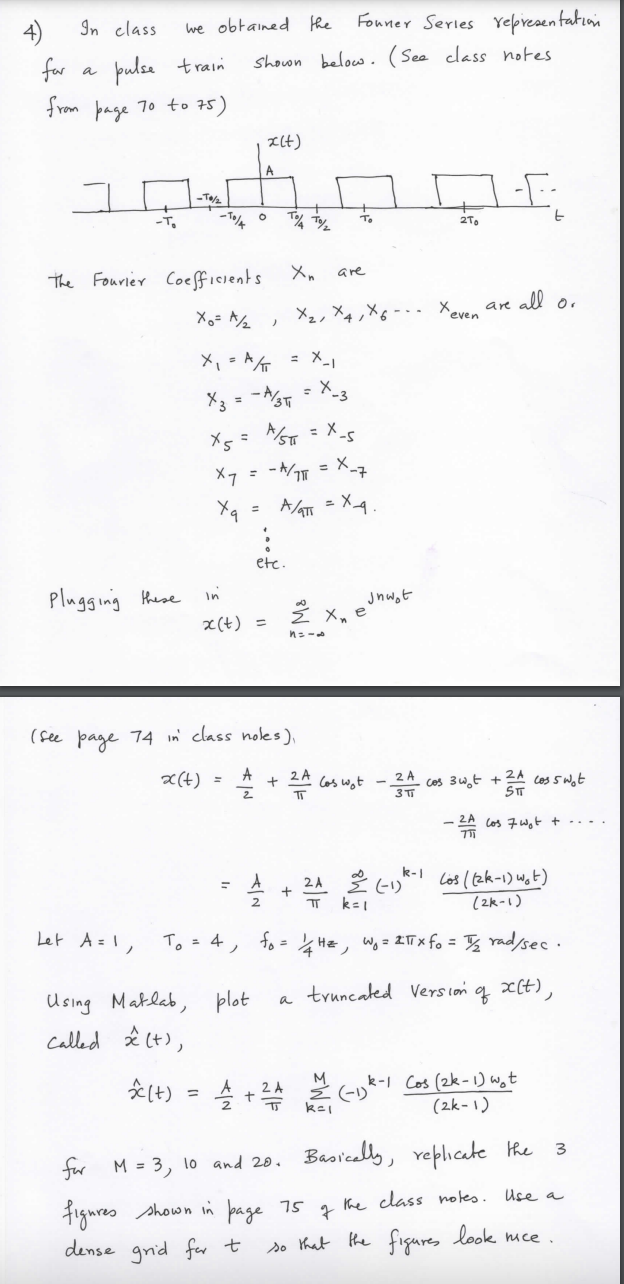 4) In class we obtained the Fourier Series representation
for a pulse train shown below. (See class notes
from page 70 to 75)
x(t)
A
-T₀ -T₀/2 -T₀/4 0 T₀/4 T₀/2 T₀ 2T₀ t
The Fourier Coefficients Xₙ are
X₀ = A/2 , X₂, X₄, X₆ --- X_even are all 0.
X₁ = A/π = X₋₁
X₃ = -A/3π = X₋₃
X₅ = A/5π = X₋₅
X₇ = -A/7π = X₋₇
X₉ = A/9π = X₋₉.
⋮
etc.
Plugging these in
x(t) = Σ_{n=-∞}^{∞} Xₙ e^{jnω₀t}
(See page 74 in class notes),
x(t) = A/2 + 2A/π cos ω₀t - 2A/3π cos 3ω₀t + 2A/5π cos 5ω₀t
- 2A/7π cos 7ω₀t + ....
= A/2 + 2A/π Σ_{k=1}^{∞} (-1)^{k-1} cos((2k-1)ω₀t)/(2k-1)
Let A = 1, T₀ = 4, f₀ = 1/4 Hz, ω₀ = 2π×f₀ = π/2 rad/sec.
Using Matlab, plot a truncated version of x(t),
called x̂(t),
x̂(t) = A/2 + 2A/π Σ_{k=1}^{M} (-1)^{k-1} Cos(2k-1)ω₀t/(2k-1)
for M = 3, 10 and 20. Basically, replicate the 3
figures shown in page 75 of the class notes. Use a
dense grid for t so that the figures look nice.